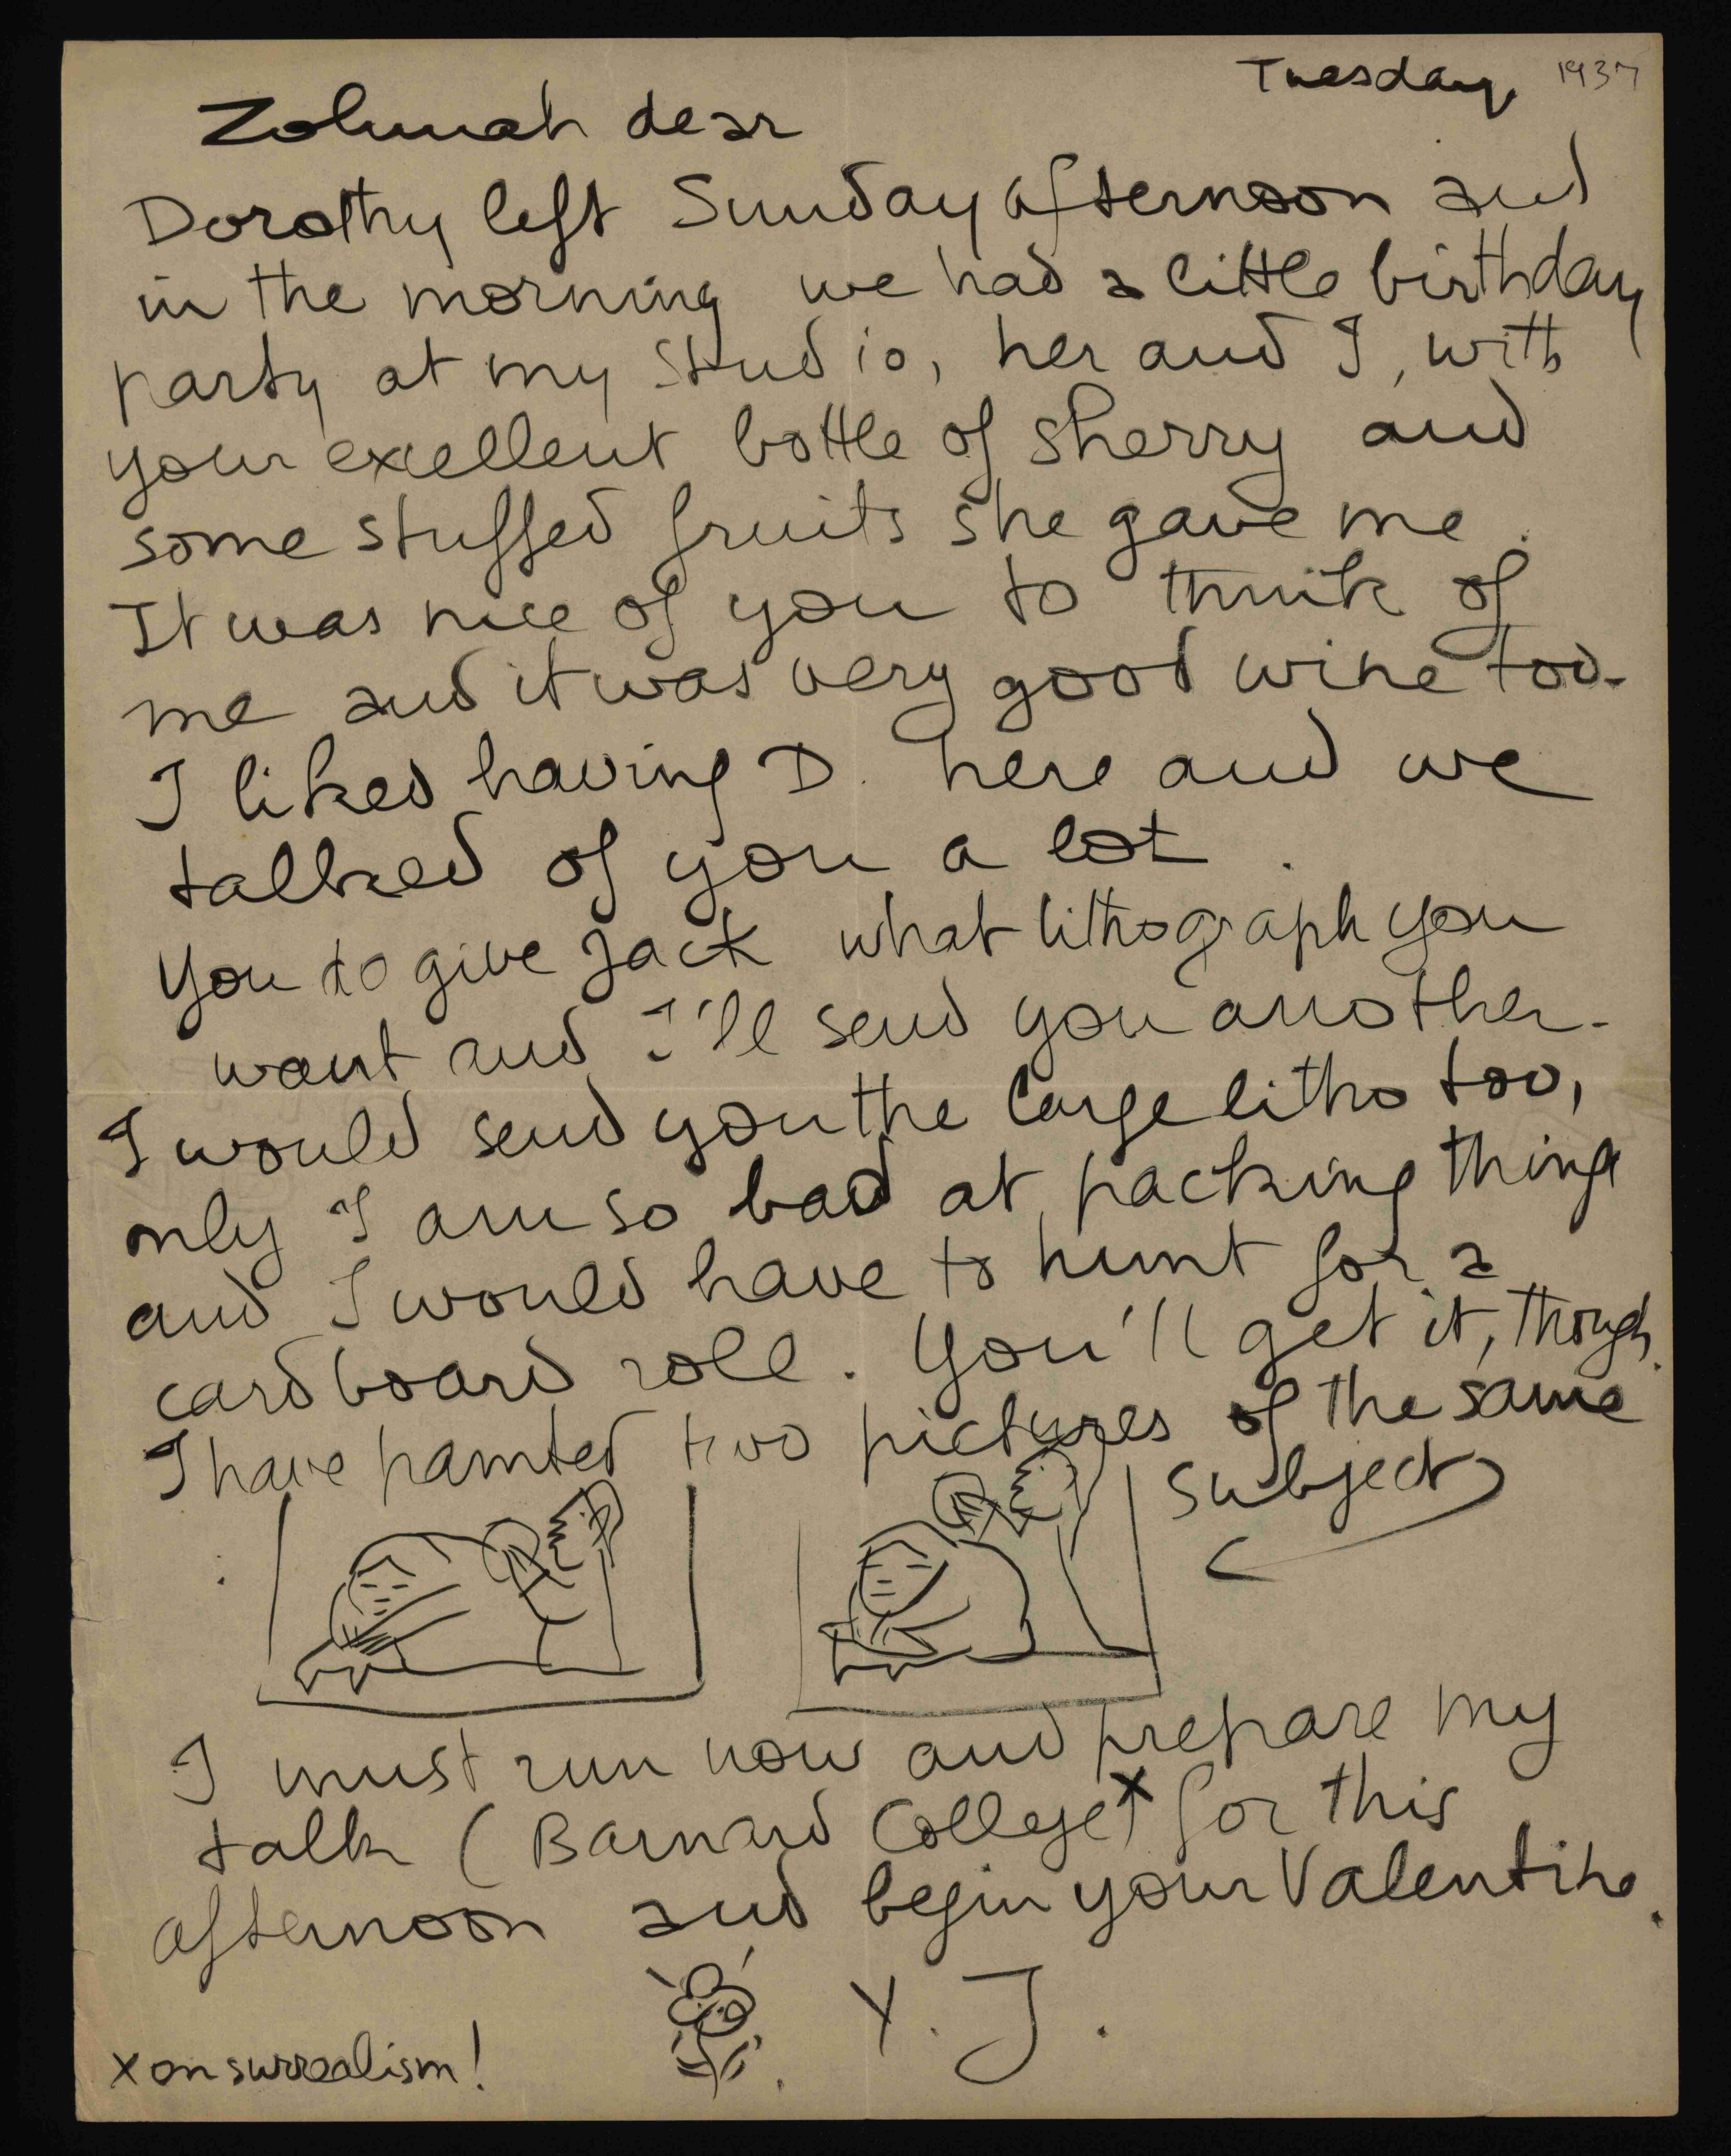 Tuesday, 1937
Zohmah dear
Dorothy left Sunday afternoon and
in the morning we had a little birthday
party at my studio, her and I, with
your excellent bottle of sherry and
some stuffed fruits she gave me.
It was nice of you to think of
me and it was very good wine too.
I liked having D. here and we
talked of you a lot.
You to give Jack what lithograph you
want and I'll send you another.
I would send you the large litho too,
only I am so bad at packing things
and I would have to hunt for a
cardboard roll. You'll get it, though.
I have painted two pictures of the same
subject
I must run now and prepare my
talk (Barnard College) x for this
afternoon and begin your Valentine.
Y. J.
x on surrealism!